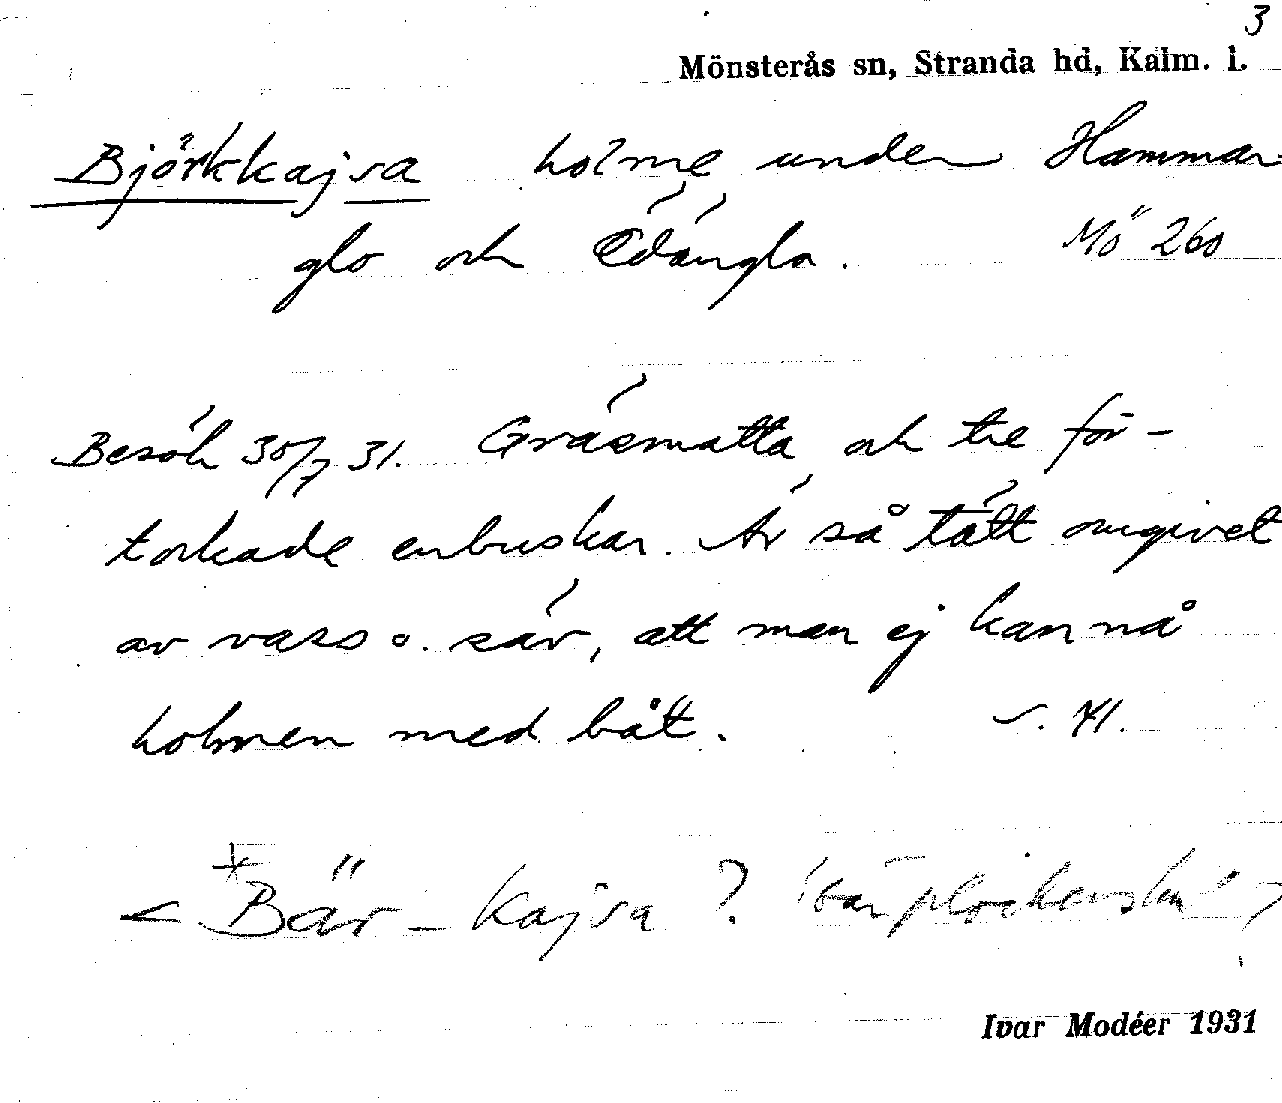 3
Mönsterås sn, Stranda hd, Kalm. l.
Björkkajsa holme under Hammar-
glo och Ödängla. Mö 260
Besök 30/7 31. Gräsmatta och tre för-
torkade enbuskar. Är så tätt omgivet
av vass o. säv, att man ej kan nå
holmen med båt. s. 71.
< *Bär-kajsa? 'bärplockerska'?
Ivar Modéer 1931